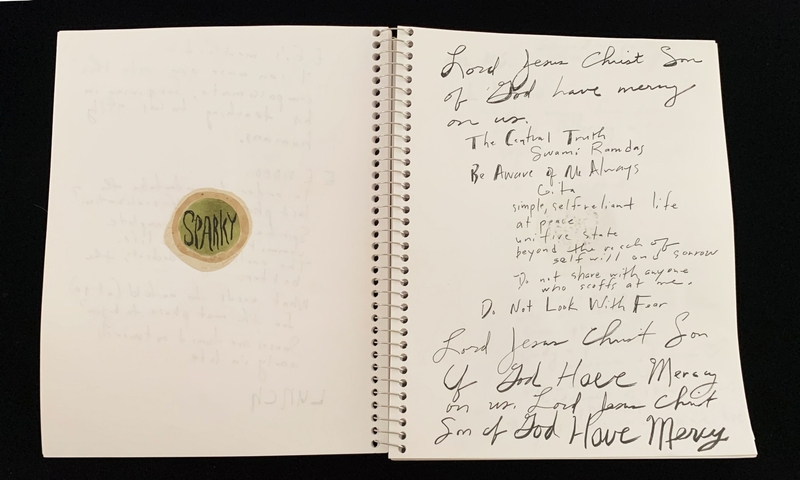 SPARKY
Lord Jesus Christ Son
of God have mercy
on us.
The Central Truth
Swami Ramdas
Be Aware of Me Always
Gita
simple, self-reliant life
at peace
unitive state
beyond the reach of
self will and sorrow
Do not share with anyone
who scoffs at me.
Do Not Look With Fear
Lord Jesus Christ Son
Of God Have Mercy
on us. Lord Jesus Christ
Son of God Have Mercy
LUNCH